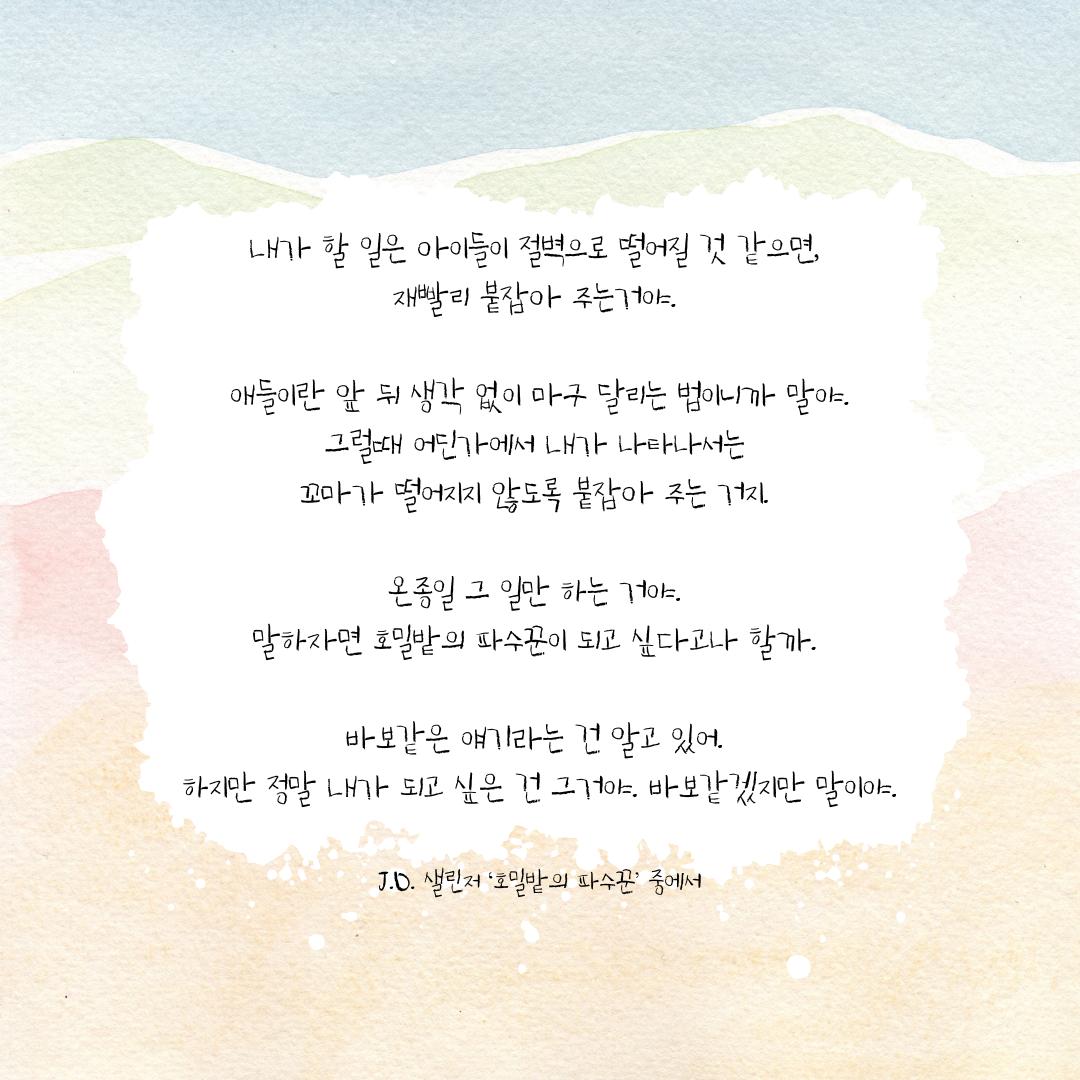 내가 할 일은 아이들이 절벽으로 떨어질 것 같으면,
재빨리 붙잡아 주는거야.
애들이란 앞 뒤 생각 없이 마구 달리는 법이니까 말야.
그럴때 어딘가에서 내가 나타나서는
꼬마가 떨어지지 않도록 붙잡아 주는 거지.
온종일 그 일만 하는 거야.
말하자면 호밀밭의 파수꾼이 되고 싶다고나 할까.
바보같은 얘기라는 건 알고 있어.
하지만 정말 내가 되고 싶은 건 그거야. 바보같겠지만 말이야.
J.D. 샐린저 ‘호밀밭의 파수꾼’ 중에서